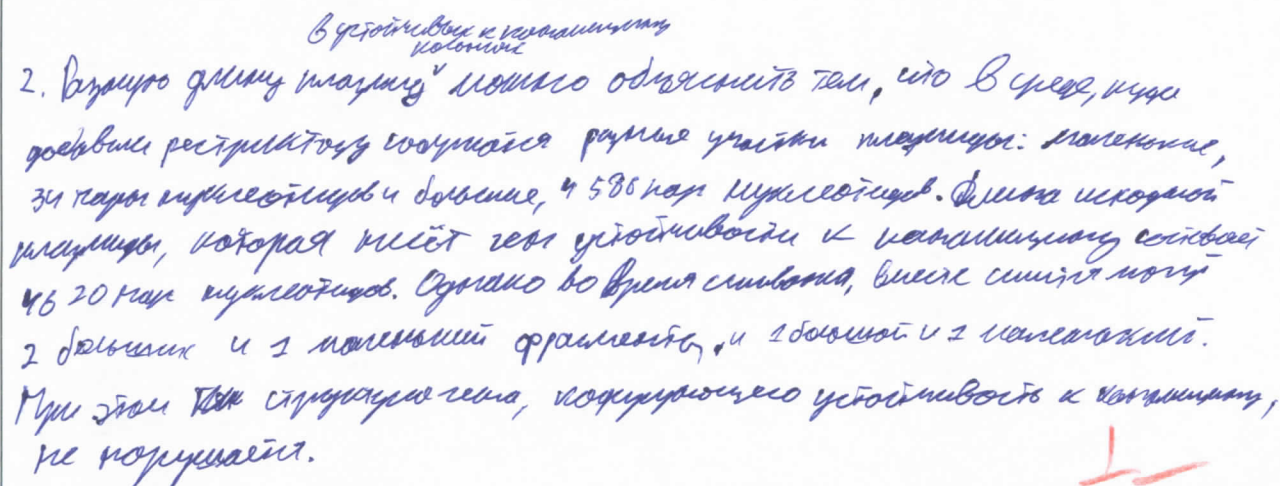 в устойчивых к канамицину
колониях
2. Разную длину плазмид можно объяснить тем, что в среде, куда
добавили рестриктазу содержатся разные участки плазмиды: маленькие,
34 пары нуклеотидов и большие, 4 586 пар нуклеотидов. Длина исходной
плазмиды, которая несёт ген устойчивости к канамицину составляет
4620 пар нуклеотидов. Однако во время сшивания, вместе сшиться могут
2 больших и 1 маленький фрагменты, и 1 большой и 1 маленький.
При этом структура гена, кодирующего устойчивость к канамицину,
не нарушается.
1